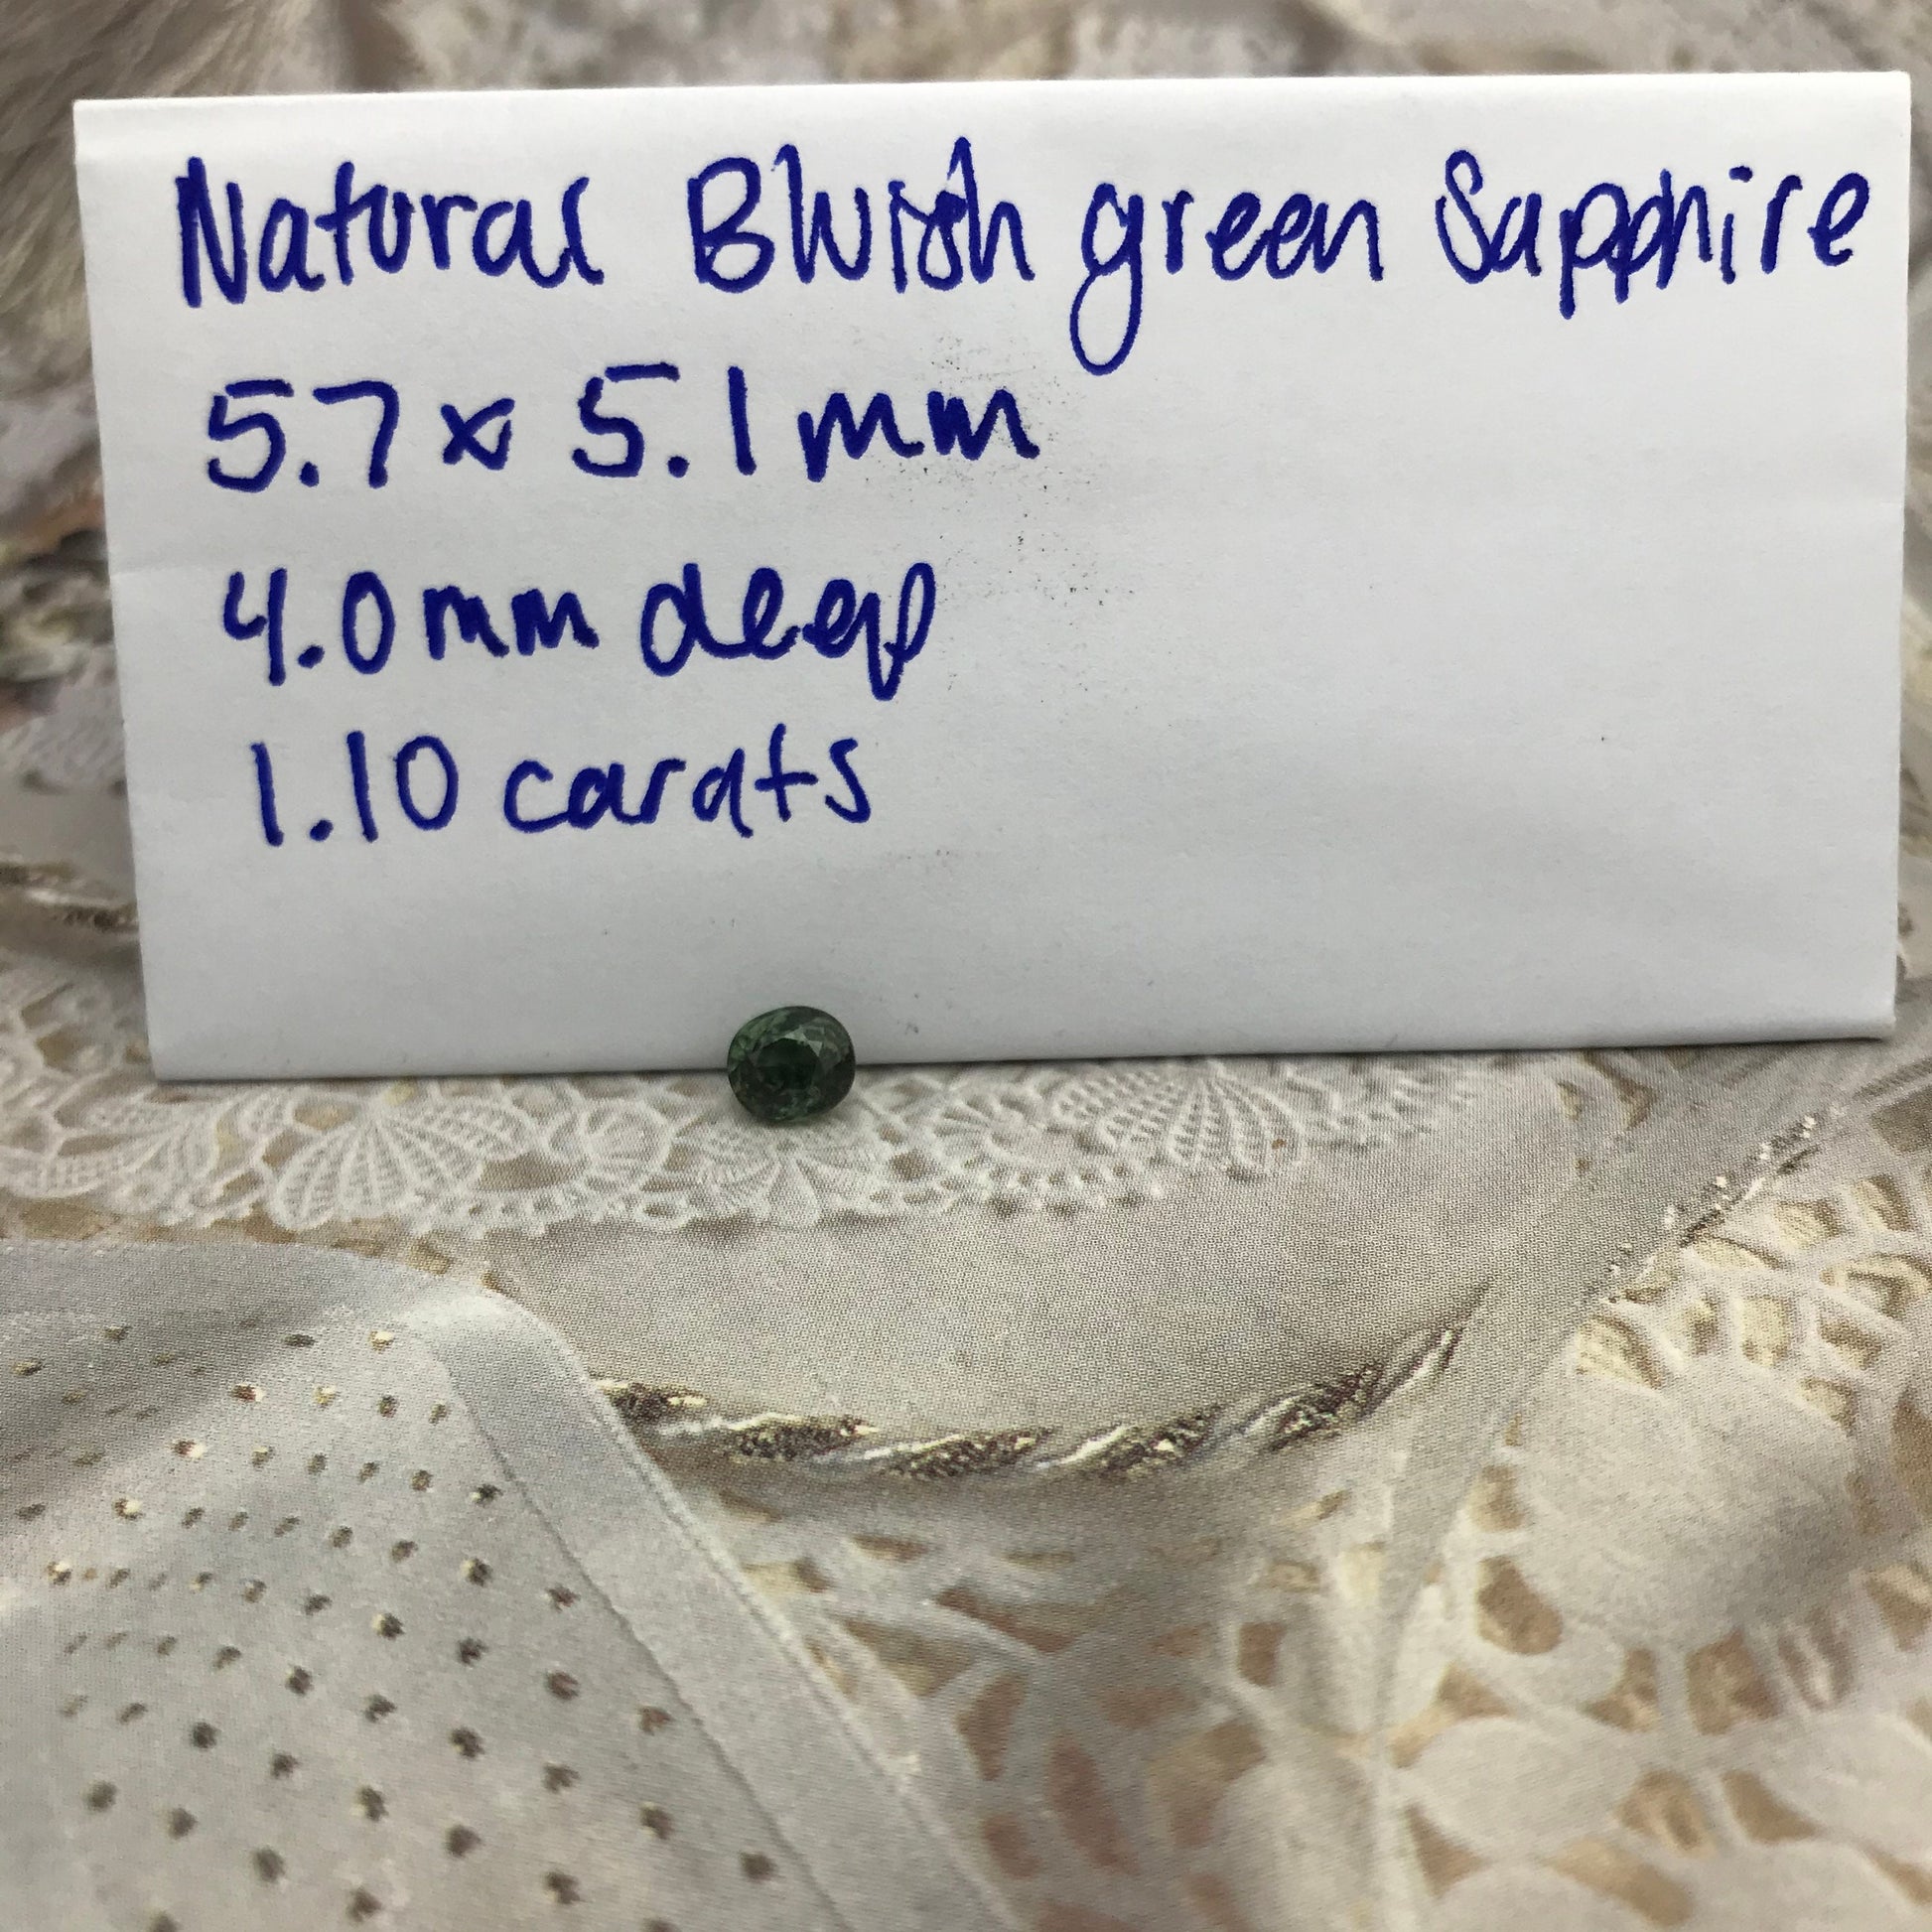 Natural Bluish green Sapphire
5.7 x 5.1 mm
4.0 mm deep
1.10 carats